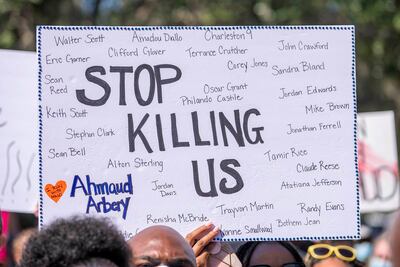 Walter Scott Amadou Diallo Charleston 9
Eric Garner Clifford Glover Terrance Crutcher John Crawford
Sean Reed Corey Jones Sandra Bland
STOP
Oscar Grant Jordan Edwards
Philando Castile Mike Brown
Keith Scott
KILLING
Stephon Clark Jonathan Ferrell
Sean Bell Tamir Rice
Alton Sterling Claude Reese
US
Ahmaud Arbery
Jordan Davis Atatiana Jefferson
Renisha McBride Trayvon Martin Randy Evans
Yvonne Smallwood Botham Jean